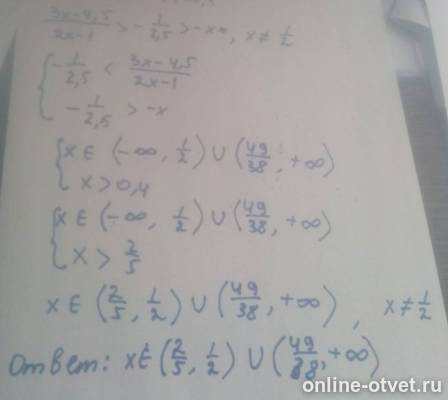 (3x-4,5)/(2x-1) > -1/2,5 > -x , x ≠ 1/2
{ -1/2,5 < (3x-4,5)/(2x-1)
-1/2,5 > -x
{ x ∈ (-∞, 1/2) ∪ (49/38, +∞)
x > 0,4
{ x ∈ (-∞, 1/2) ∪ (49/38, +∞)
x > 2/5
x ∈ (2/5, 1/2) ∪ (49/38, +∞) , x ≠ 1/2
Ответ: x ∈ (2/5, 1/2) ∪ (49/38, +∞)
online-otvet.ru